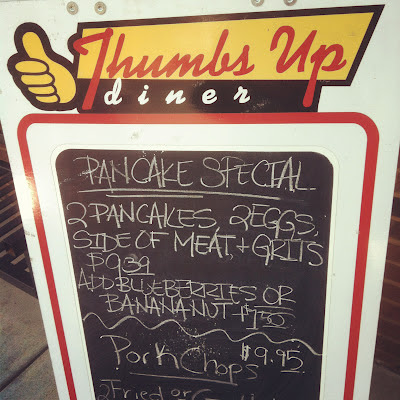 Thumbs Up
diner
PANCAKE SPECIAL
2 PANCAKES, 2 EGGS,
SIDE OF MEAT, + GRITS
$9.39
ADD BLUEBERRIES OR
BANANA NUT + $1.50
Pork Chops $9.95
2 Fried or